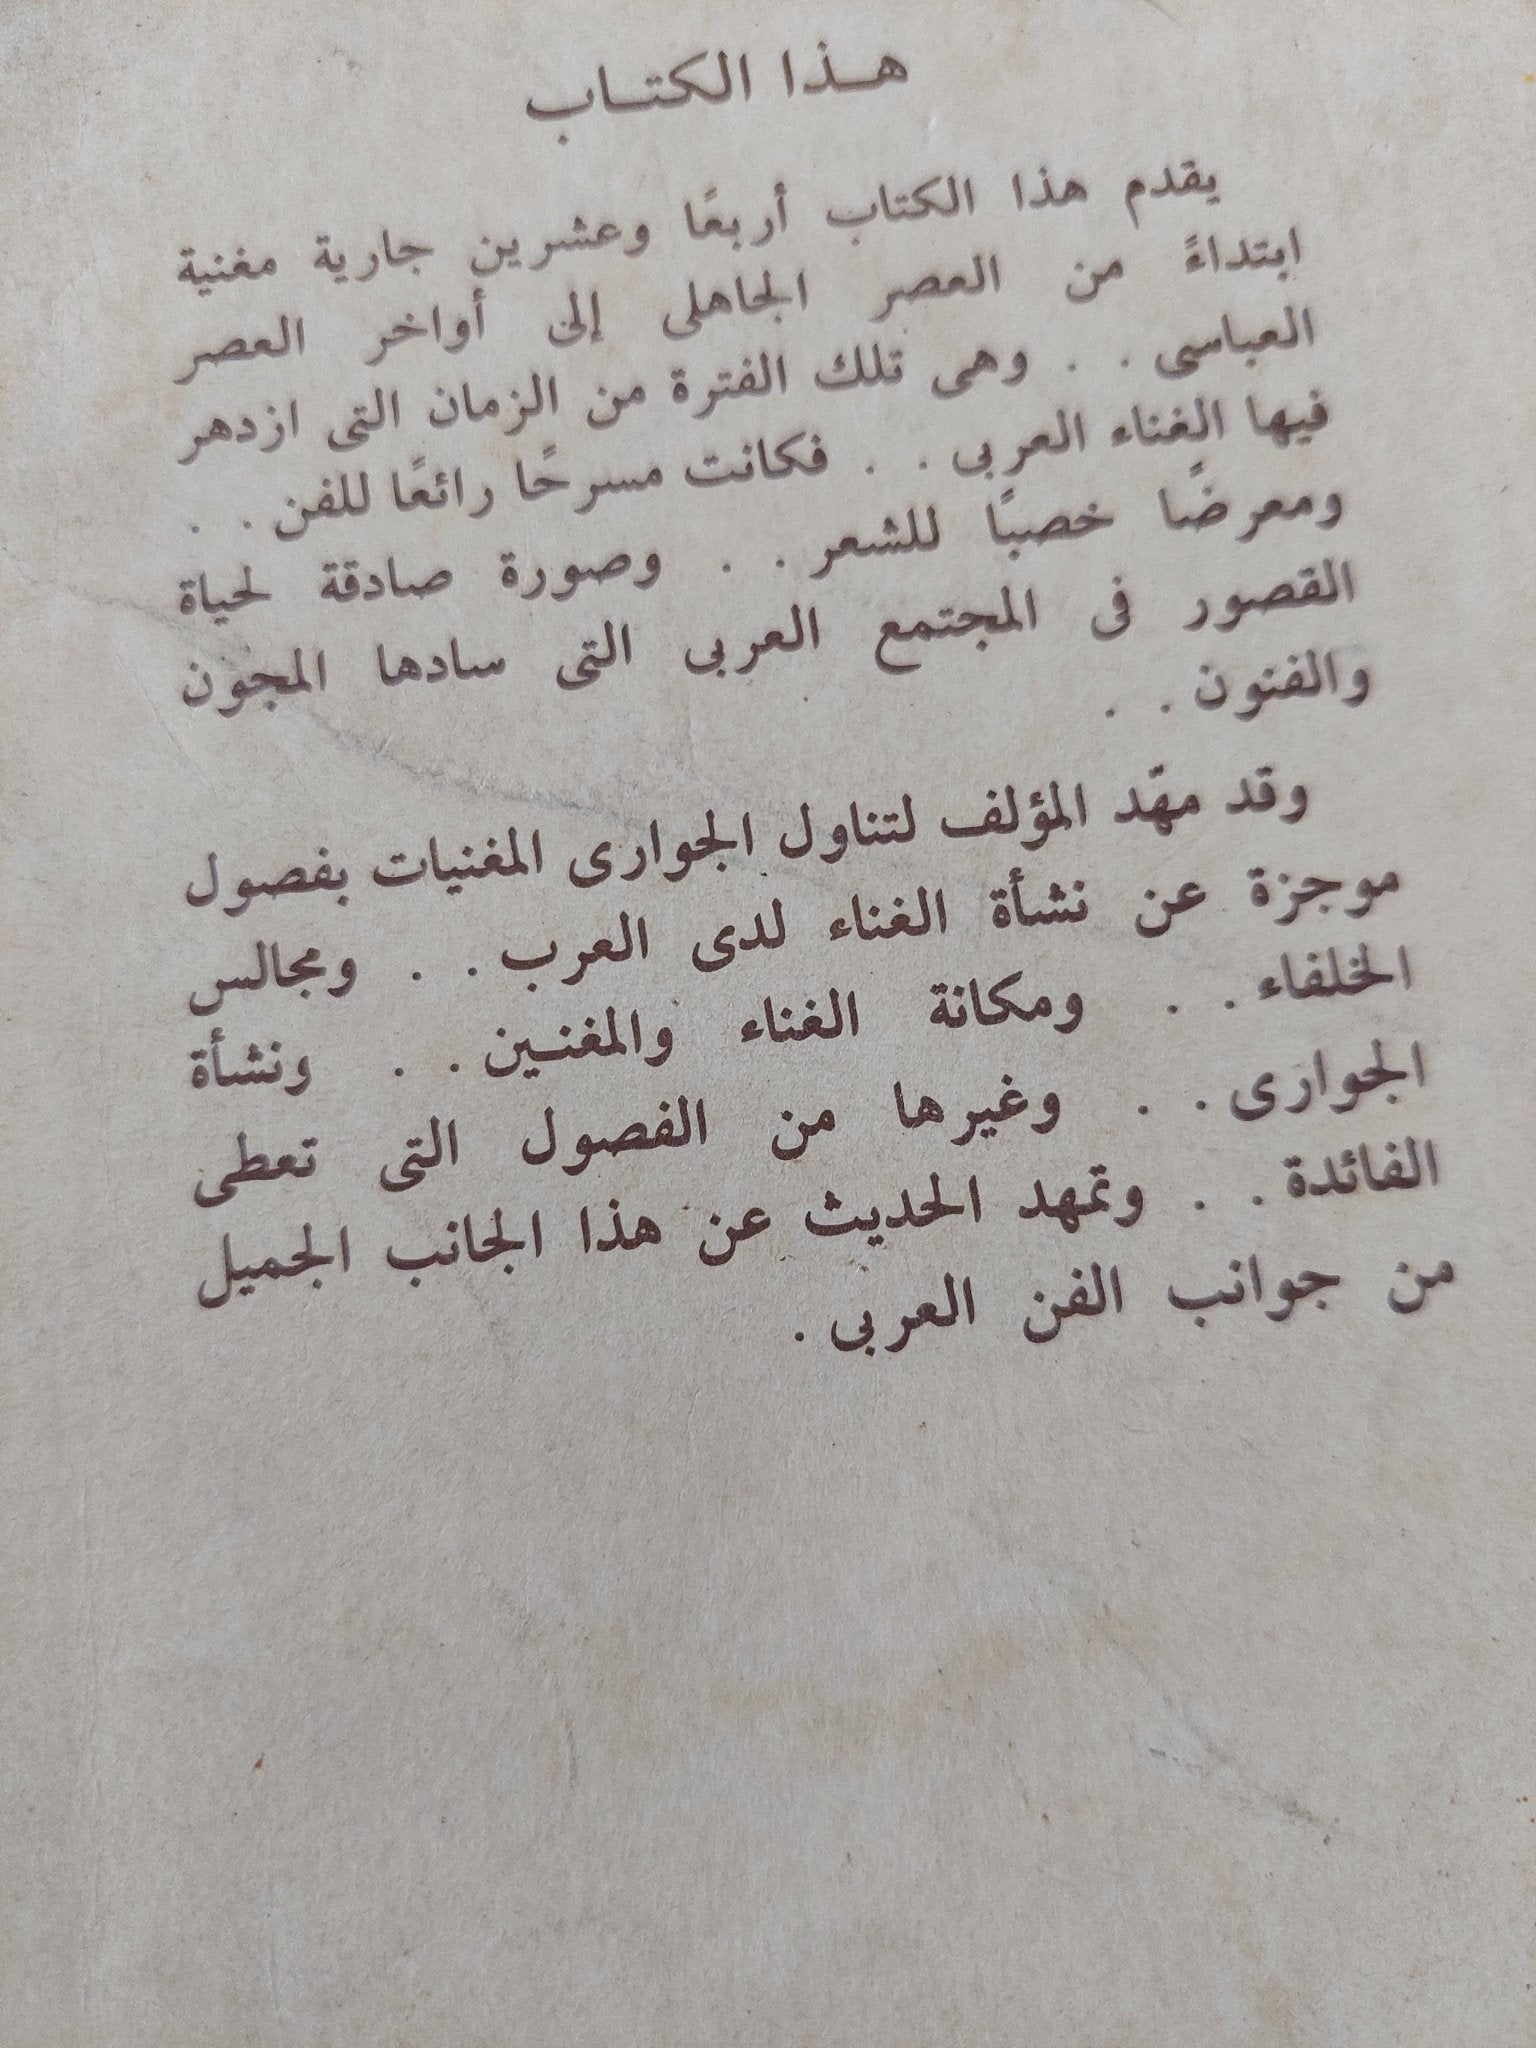 هـذا الكتـاب
يقدم هذا الكتاب أربعًا وعشرين جارية مغنية
ابتداءً من العصر الجاهلى إلى أواخر العصر
العباسى . . وهى تلك الفترة من الزمان التى ازدهر
فيها الغناء العربى . . فكانت مسرحًا رائعًا للفن . .
ومعرضًا خصبًا للشعر . . وصورة صادقة لحياة
القصور فى المجتمع العربى التى سادها المجون
والفنون . .
وقد مهّد المؤلف لتناول الجوارى المغنيات بفصول
موجزة عن نشأة الغناء لدى العرب . . ومجالس
الخلفاء . . ومكانة الغناء والمغنـين . . ونشأة
الجوارى . . وغيرها من الفصول التى تعطى
الفائدة . . وتمهد الحديث عن هذا الجانب الجميل
من جوانب الفن العربى .